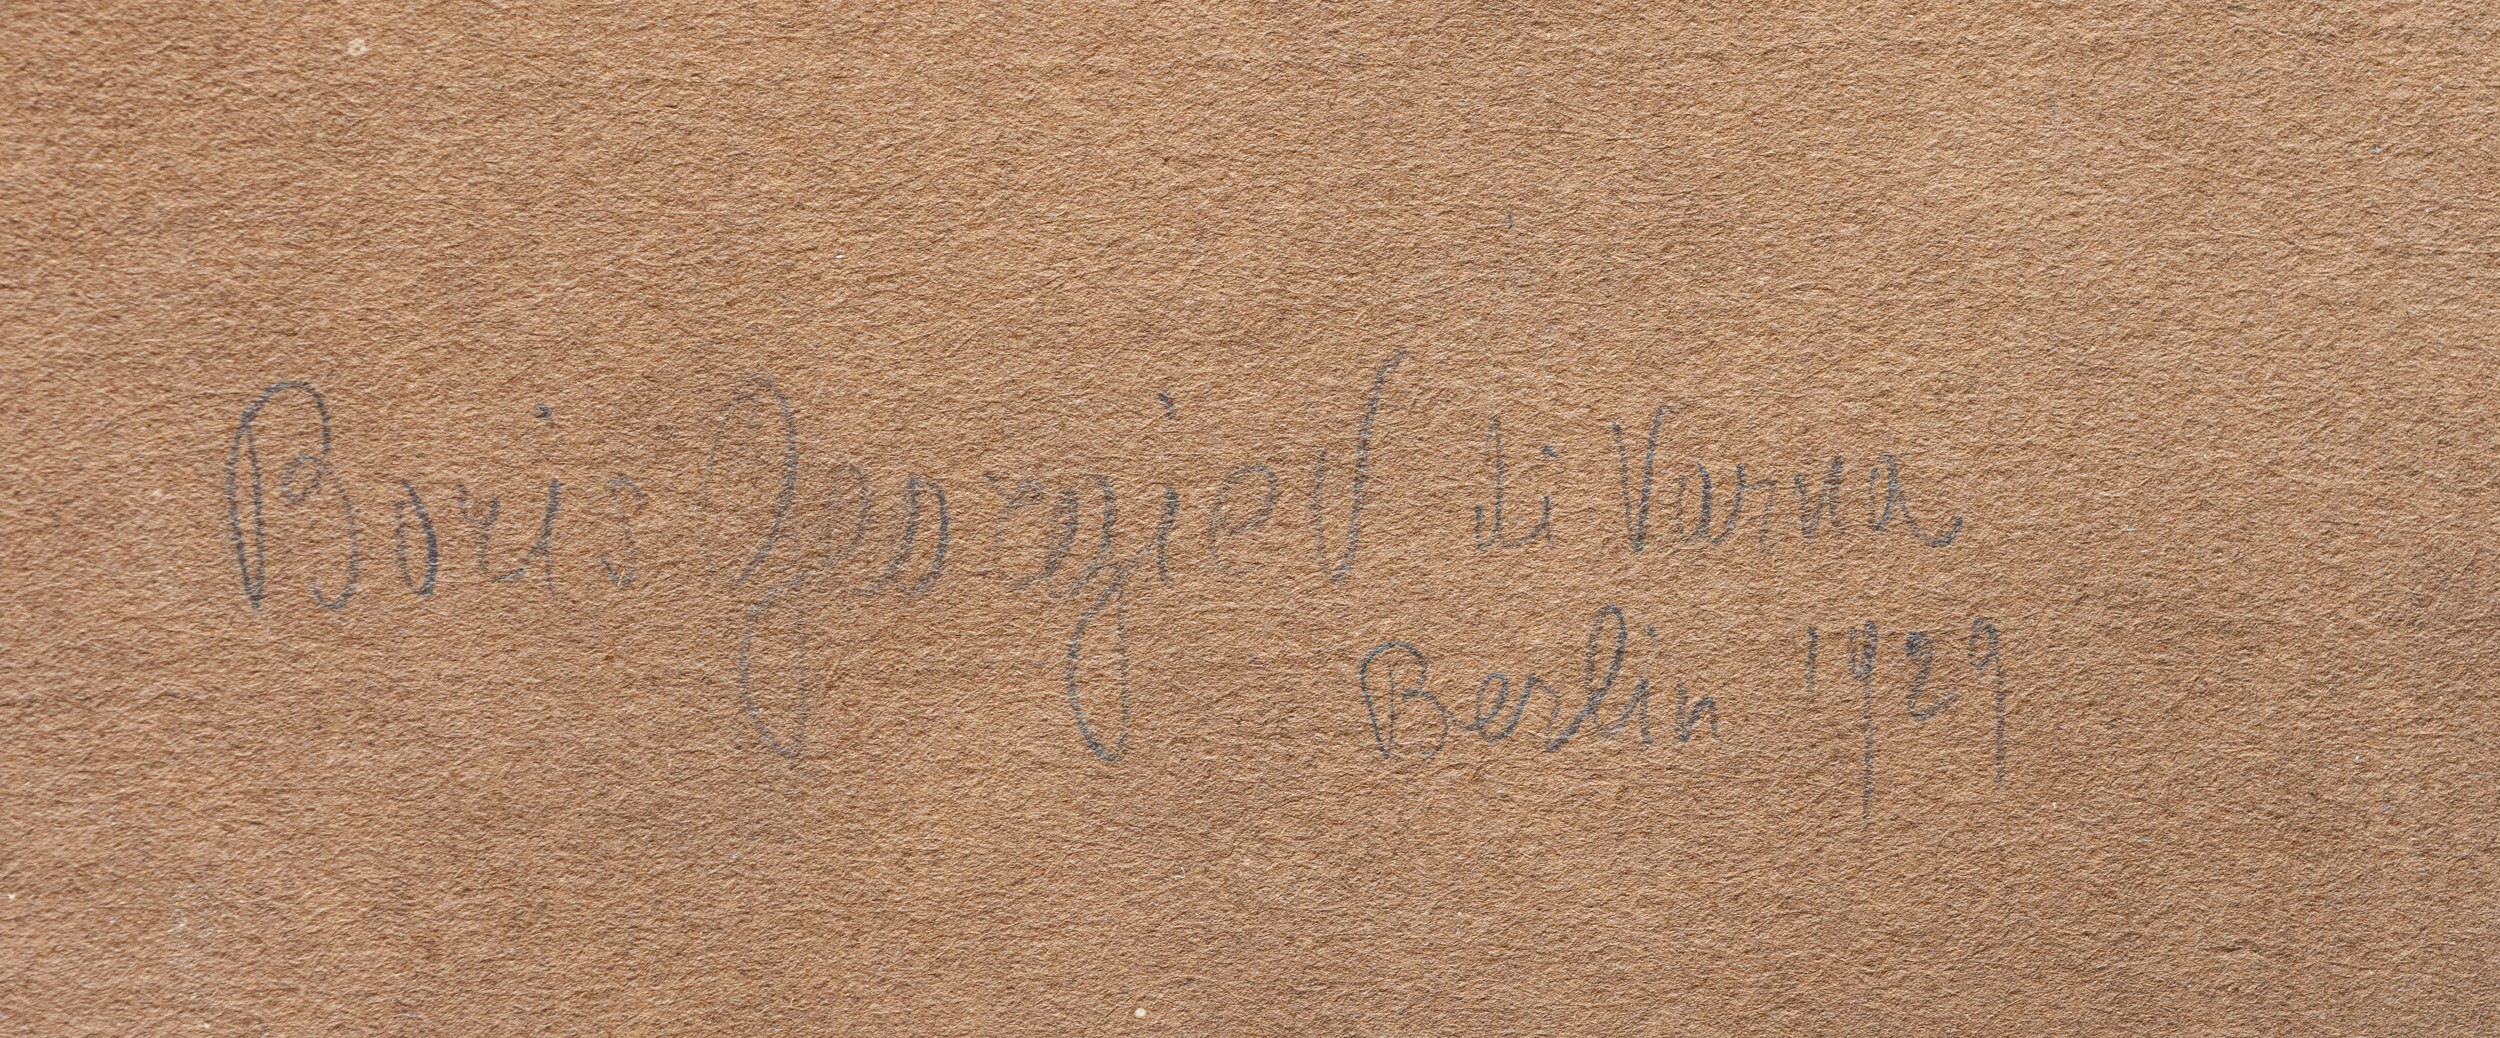 Boris Georgiev di Varna
Berlin 1929